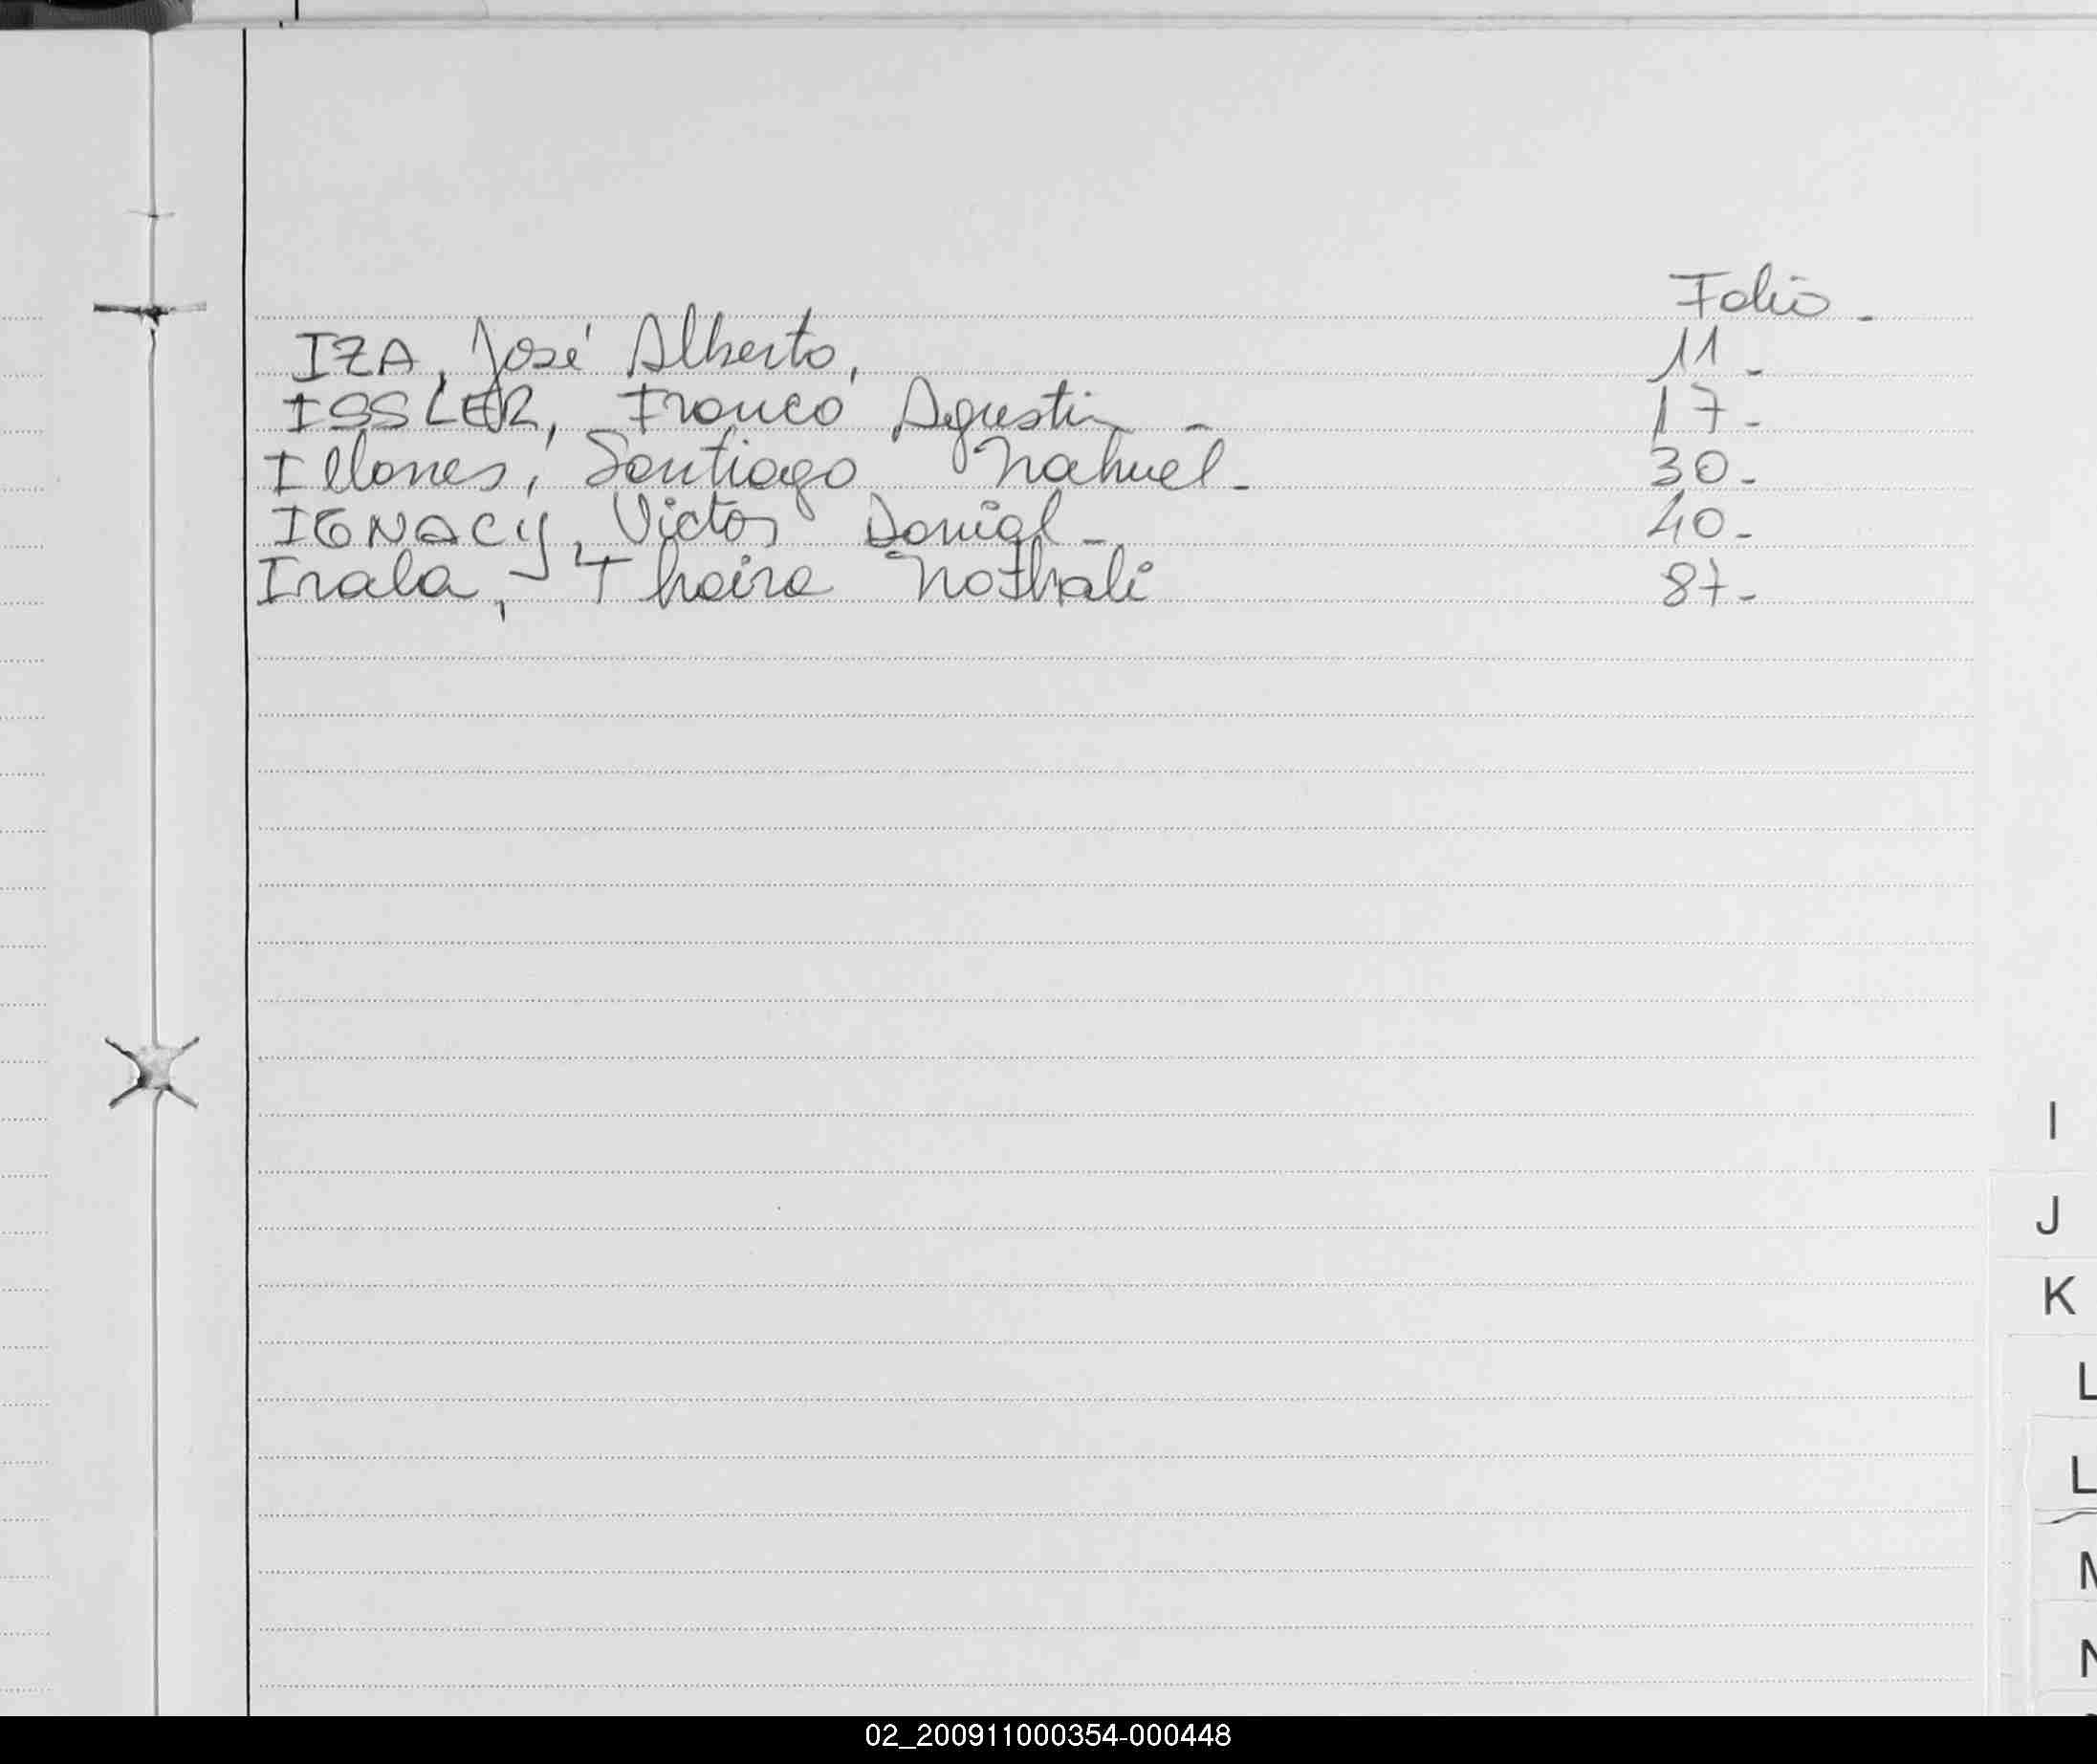 Folio -
IZA, José Alberto, 11 -
ISSLER, Franco Agustin - 17 -
Illanes, Santiago Nahuel - 30 -
IGNACY, Victor Daniel - 40 -
Irala, Thaira Nathali 87 -
I
J
K
L
L
M
N
02_200911000354-000448